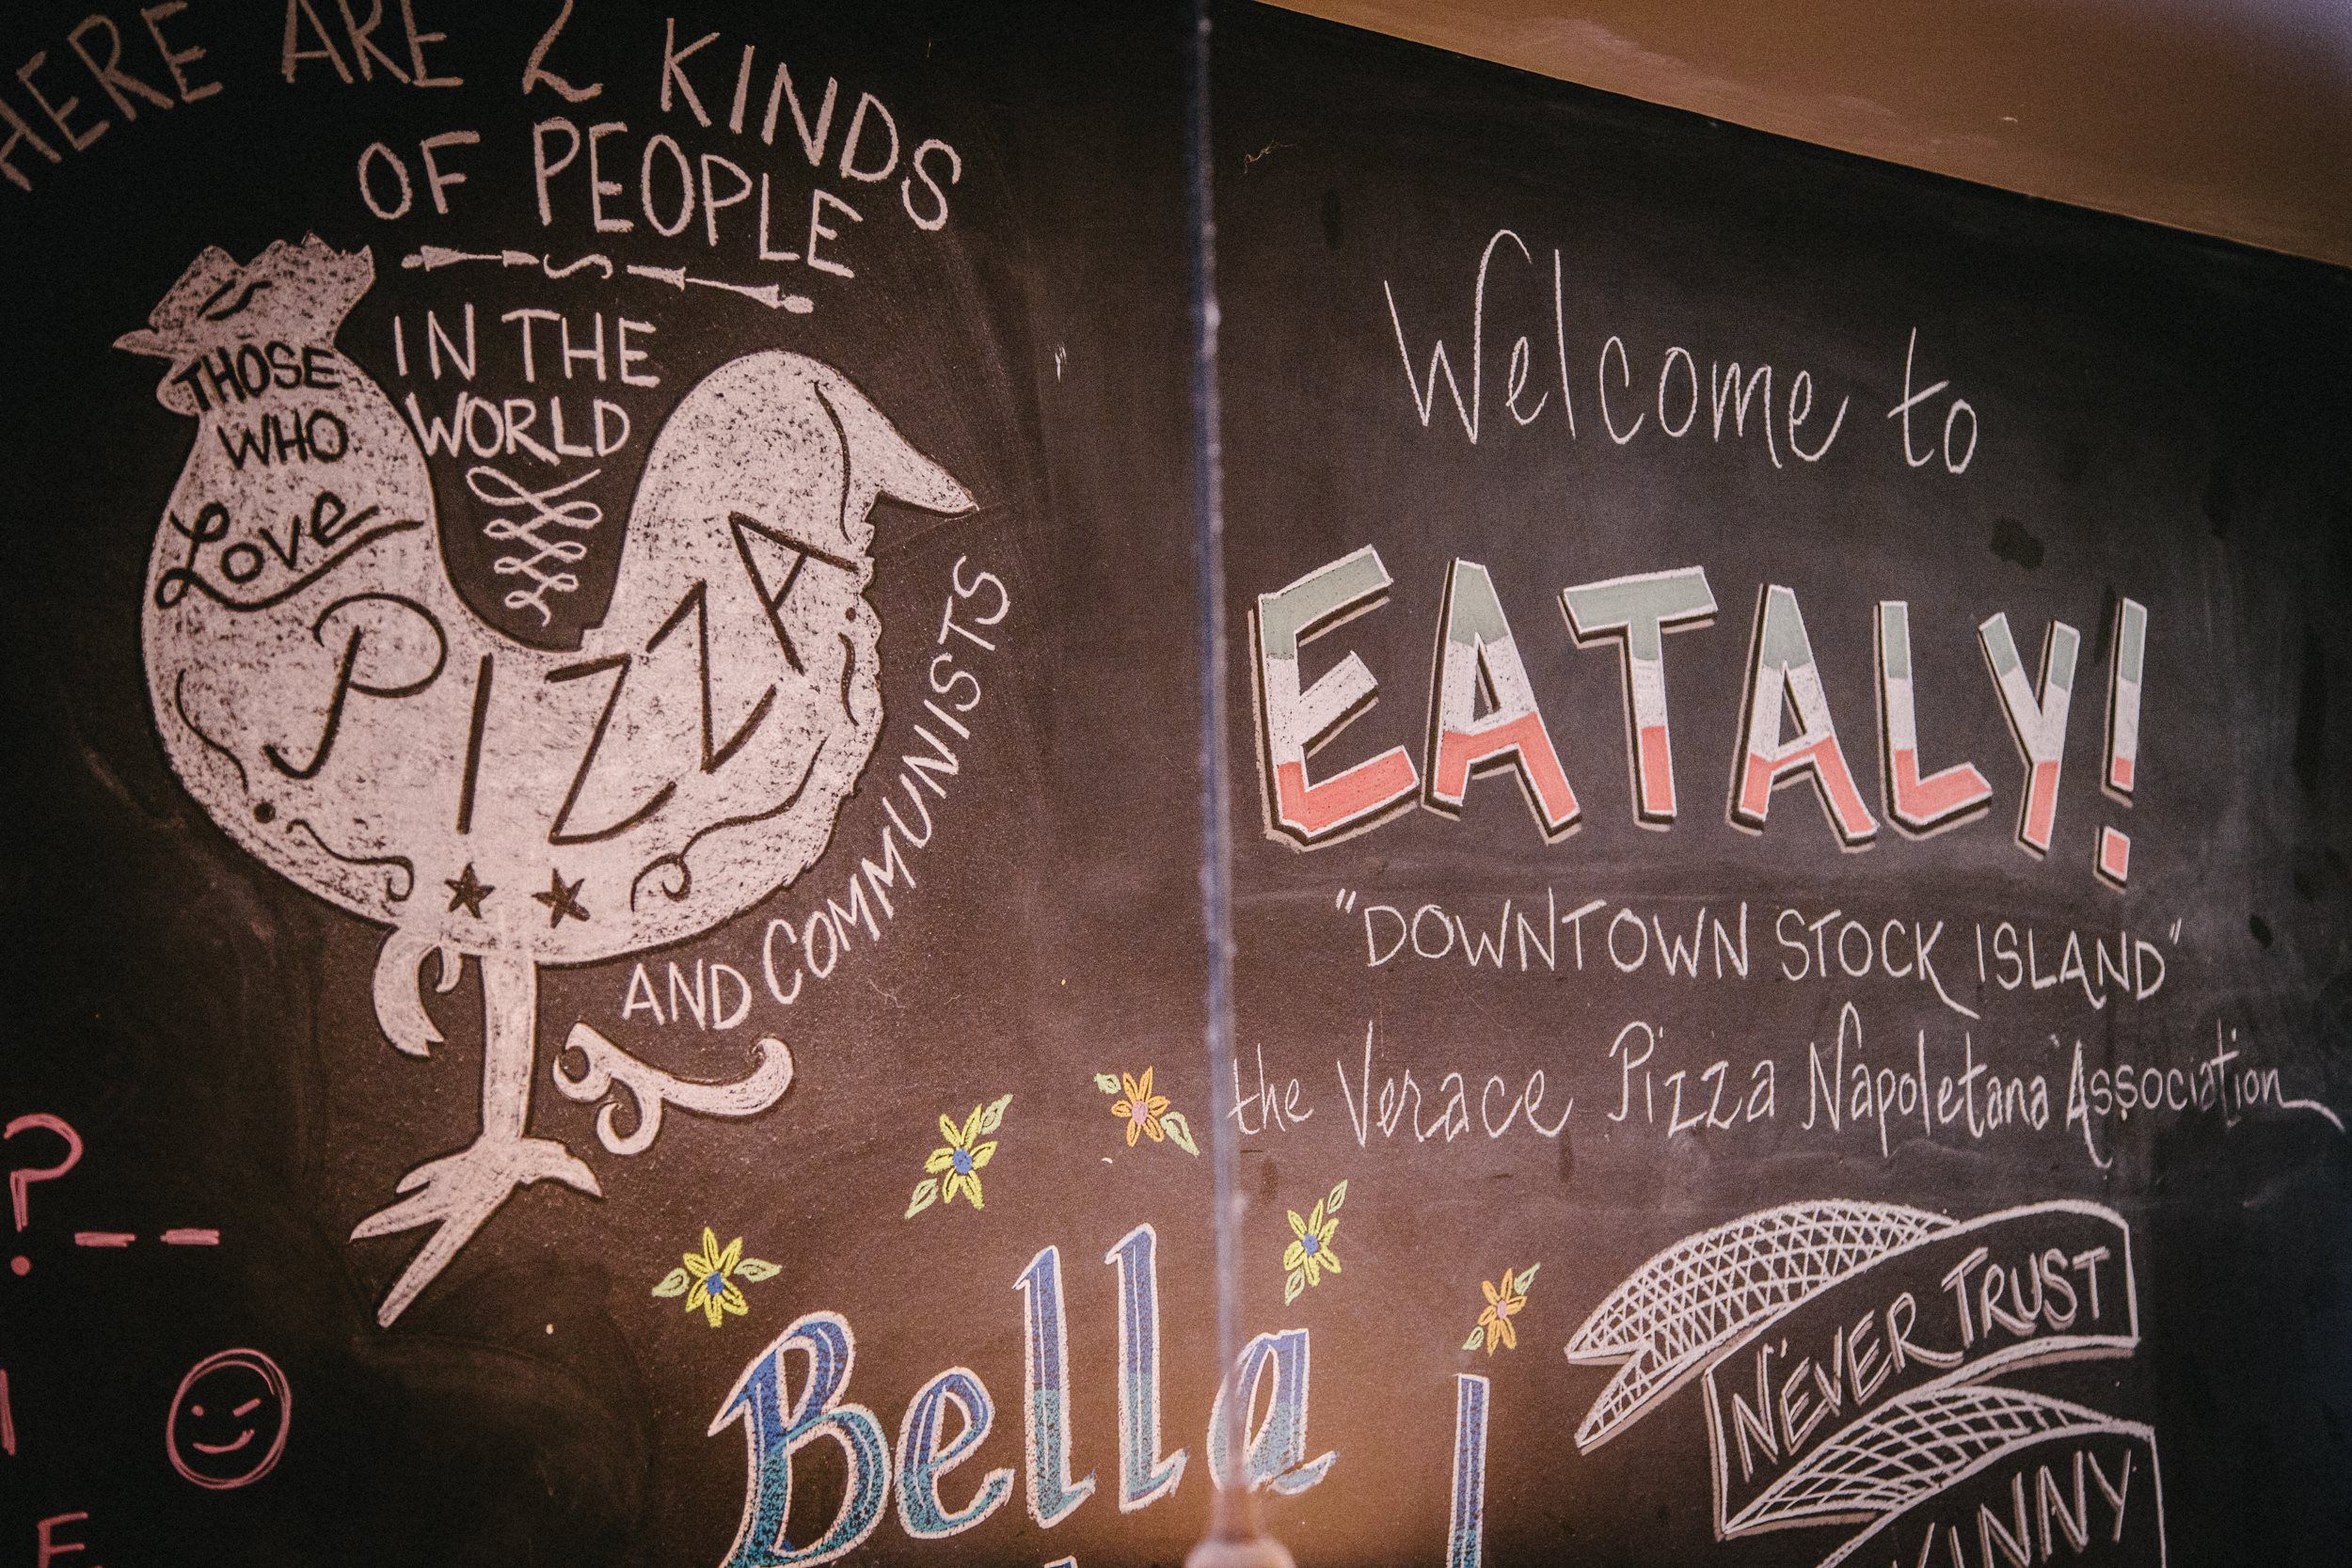 HERE ARE 2 KINDS
OF PEOPLE
IN THE
WORLD
THOSE
WHO
Love
PIZZA
AND COMMUNISTS
Welcome to
EATALY!
"DOWNTOWN STOCK ISLAND"
the Verace Pizza Napoletana Association
Bella
NEVER TRUST
KINNY
?--
E